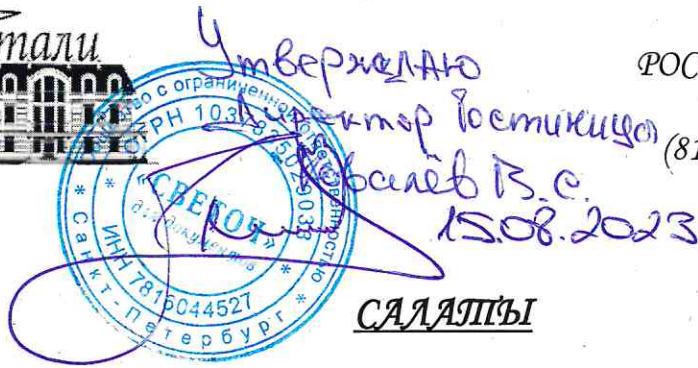 тали
Утверждаю
РОС
Директор Гостиницы
(81
Ковалёв В.С.
15.08.2023
с ограниченной ответственностью
ОГРН
«СВЕТОЧ»
для документов
ИНН 7816044527
* Санкт-Петербург *
САЛАТЫ